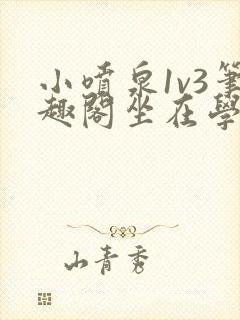 小噴泉1v3筆
趣閣坐在學
山青秀